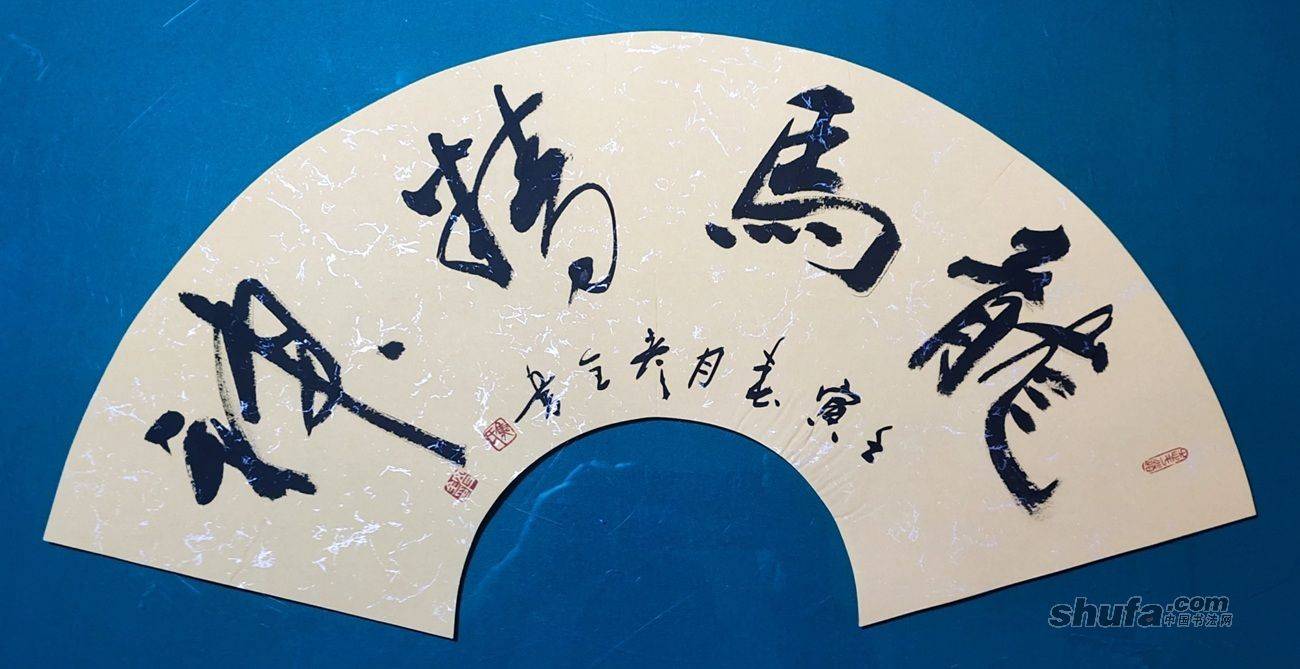 龍馬精神
壬寅春月
shufa.com
中国书法网